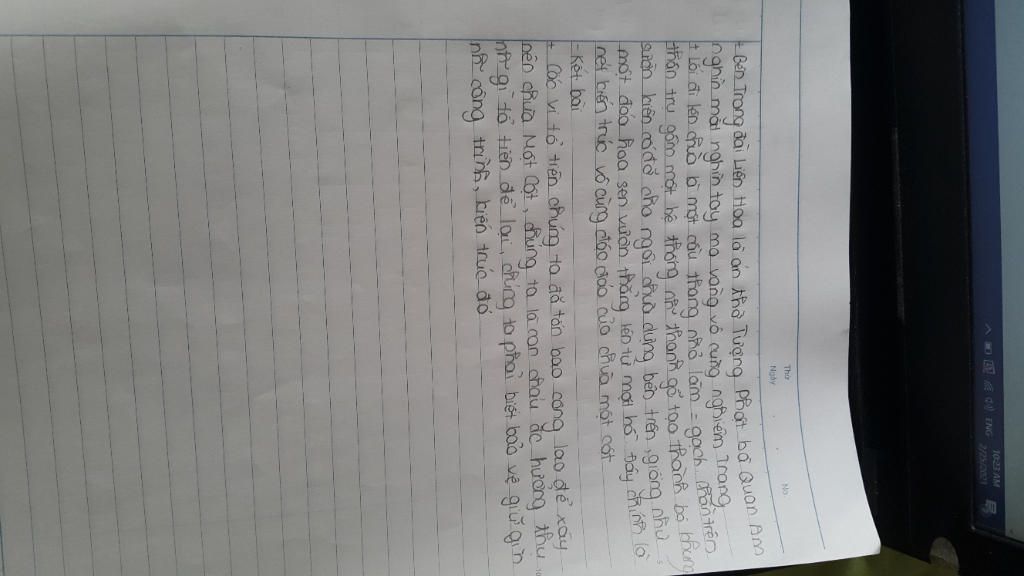 + Bên Trong đài Liên Hoa là án thờ Tượng Phật bà Quan Âm
nghìn mắt nghìn tay mạ vàng vô cùng nghiêm Trang
+ lối đi lên chùa là một cầu thang nhỏ làm = gạch, phần trên
thân trụ gồm một hệ thống nh~ thanh gỗ tạo thành bộ khung
sườn kiên cố đỡ cho ngôi chùa dựng bên trên, giống như
một đóa hoa sen vươn thẳng lên từ mặt hồ. Đây chính là
nét kiến trúc vô cùng độc đáo của chùa một cột
- Kết bài
+ Các vị tổ tiên chúng ta đã tốn bao công lao để xây
nên chùa Một Cột, chúng ta là con cháu đc hưởng thụ
nh~ gì tổ tiên để lại, chúng ta phải biết bảo vệ giữ gìn
nh~ công trình, kiến trúc đó
Thứ
Ngày
No.
ENG
10:23 AM